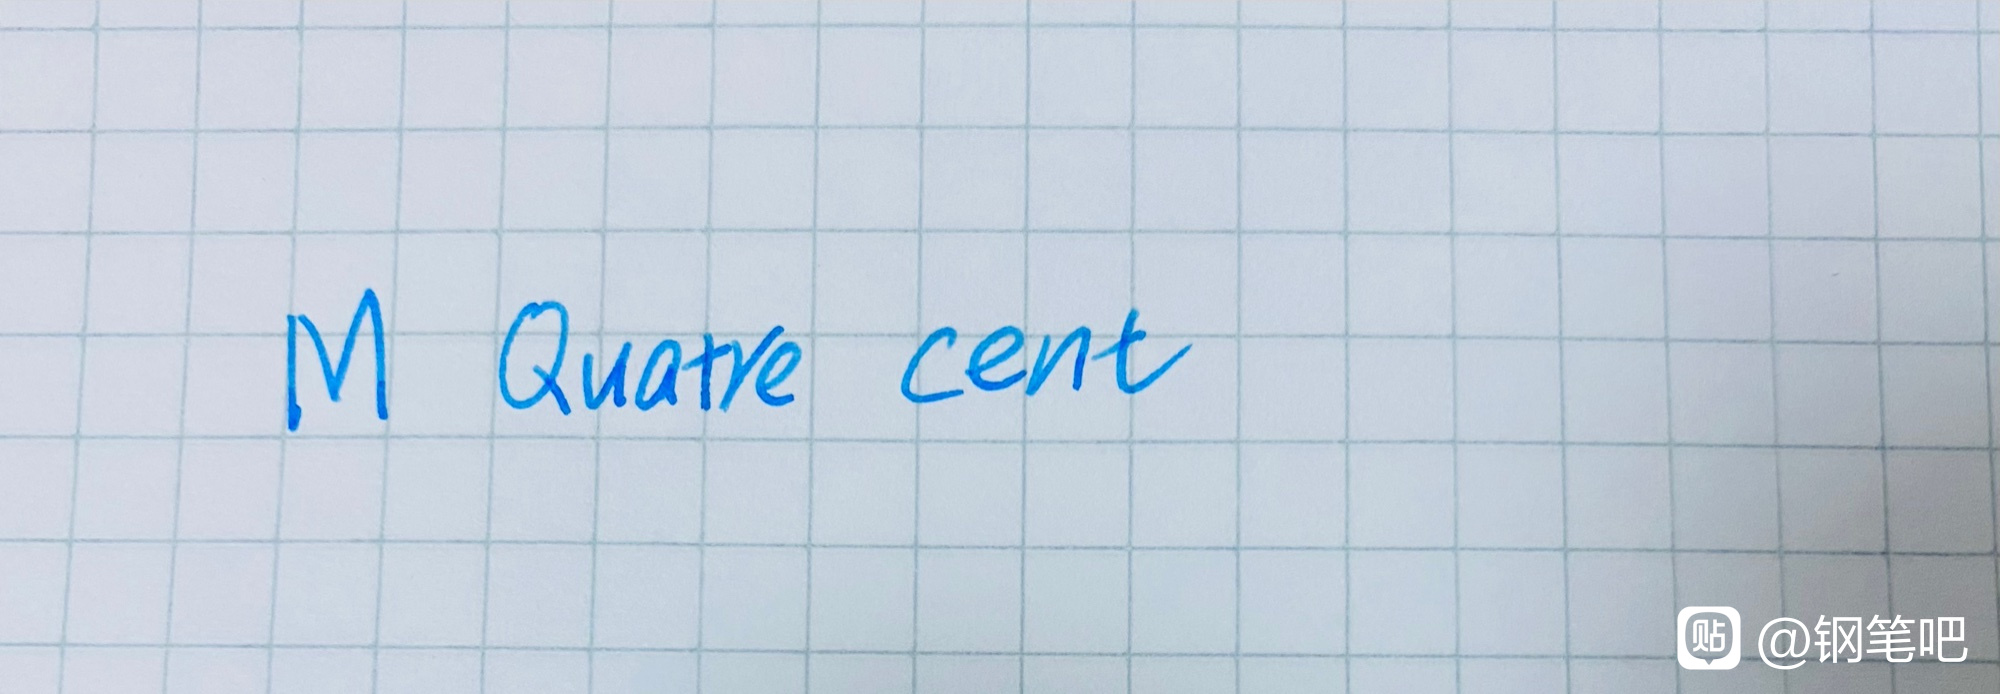 M Quatre cent
貼 @钢笔吧